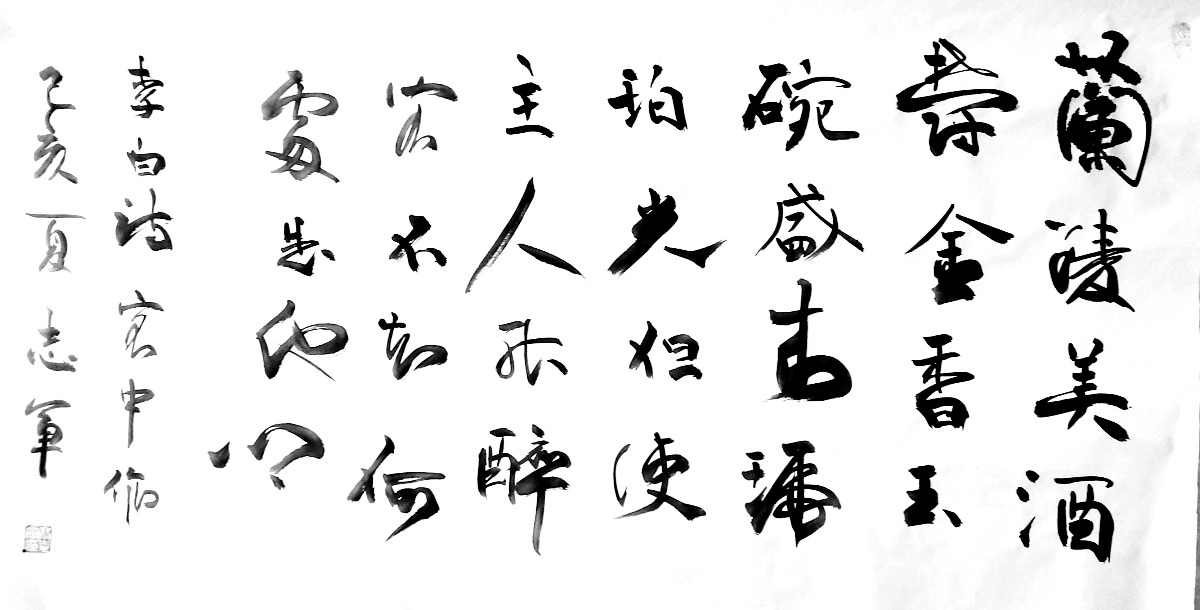 蘭陵美酒
鬱金香玉
碗盛來琥
珀光但使
主人能醉
客不知何
處是他鄉
李白詩 客中作
己亥夏志軍